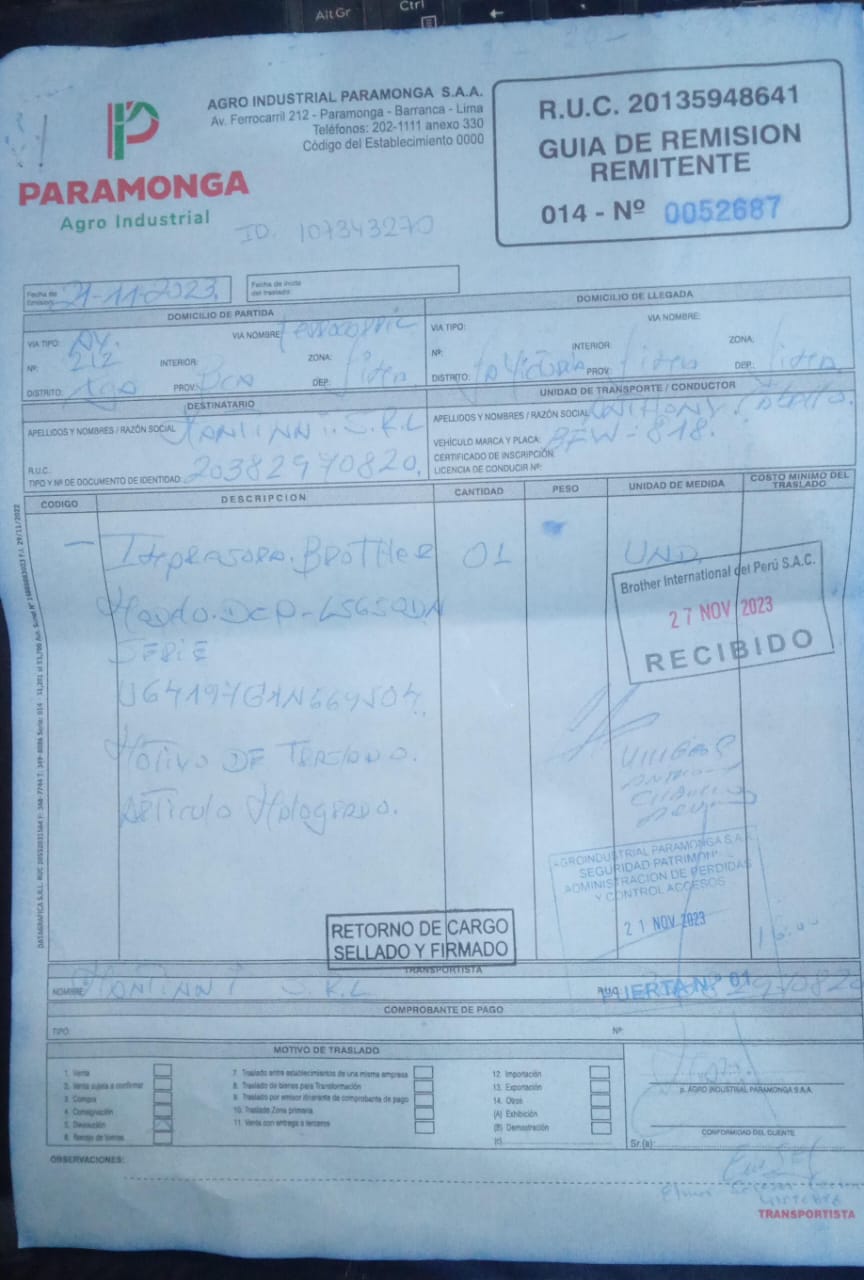 Alt Gr
Ctrl
AGRO INDUSTRIAL PARAMONGA S.A.A.
Av. Ferrocarril 212 - Paramonga - Barranca - Lima
Teléfonos: 202-1111 anexo 330
Código del Establecimiento 0000
PARAMONGA
Agro Industrial
ID. 107343270
R.U.C. 20135948641
GUIA DE REMISION
REMITENTE
014 - Nº 0052687
Fecha de Emisión: 21-11-2023
Fecha de inicio del traslado:
DOMICILIO DE PARTIDA
VIA TIPO: AV. VIA NOMBRE: Ferrocarril
Nº: 212 INTERIOR: ZONA:
DISTRITO: PROV: BCA DEP.: Lima
DOMICILIO DE LLEGADA
VIA TIPO: VIA NOMBRE:
Nº: INTERIOR: ZONA:
DISTRITO: La Victoria PROV: Lima DEP.: Lima
DESTINATARIO
APELLIDOS Y NOMBRES / RAZÓN SOCIAL S.R.L
R.U.C.
TIPO Y Nº DE DOCUMENTO DE IDENTIDAD: 20382970820
UNIDAD DE TRANSPORTE / CONDUCTOR
APELLIDOS Y NOMBRES / RAZÓN SOCIAL Anthony
VEHÍCULO MARCA Y PLACA: BFW-818.
CERTIFICADO DE INSCRIPCIÓN:
LICENCIA DE CONDUCIR Nº:
CODIGO DESCRIPCION CANTIDAD PESO UNIDAD DE MEDIDA COSTO MINIMO DEL TRASLADO
- Impresora. Brother 01 UND.
DCP-L5650DN
SERIE
U64197G1N669504
Motivo DE
Articulo
Brother International del Perú S.A.C.
27 NOV 2023
RECIBIDO
AGROINDUSTRIAL PARAMONGA S.A.A.
SEGURIDAD PATRIMONIAL
ADMINISTRACION DE PERDIDAS
Y CONTROL ACCESOS
21 NOV 2023
PUERTA Nº 01
RETORNO DE CARGO
SELLADO Y FIRMADO
TRANSPORTISTA
NOMBRE: S.R.L
COMPROBANTE DE PAGO
TIPO: Nº
MOTIVO DE TRASLADO
1. Venta
2. Venta sujeta a confirmar
3. Compra
4. Consignación
5. Devolución
6. Recojo de bienes
7. Traslado entre establecimientos de una misma empresa
8. Traslado de bienes para Transformación
9. Traslado por emisor itinerante de comprobante de pago
10. Traslado Zona primaria
11. Venta con entrega a terceros
12. Importación
13. Exportación
14. Otros
(A) Exhibición
(B) Demostración
(c)
p. AGRO INDUSTRIAL PARAMONGA S.A.A.
CONFORMIDAD DEL CLIENTE
Sr.(a):
OBSERVACIONES:
TRANSPORTISTA